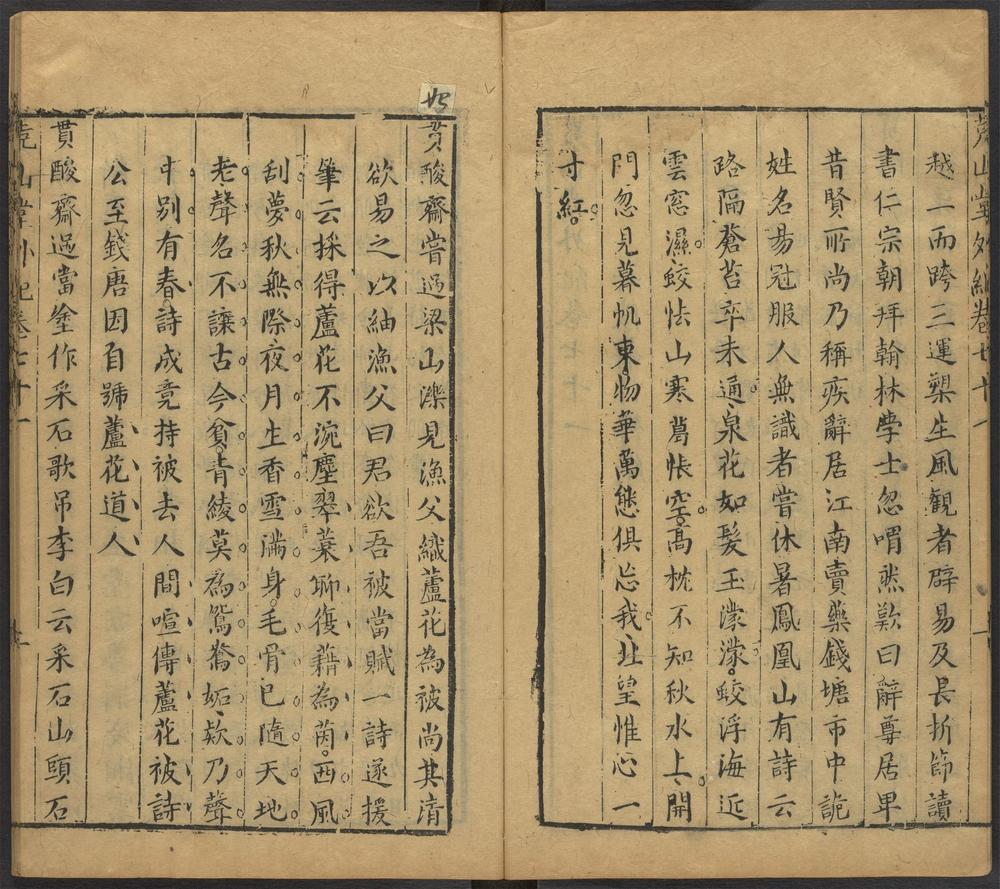 堯山堂外紀卷七十一
越一而跨三運槊生風觀者辟易及長折節讀
書仁宗朝拜翰林學士忽喟然歎曰辭尊居卑
昔賢所尚乃稱疾辭居江南賣藥錢塘市中詭
姓名昜冠服人無識者嘗休暑鳳凰山有詩云
路隔蒼苔卒未通泉花如髮玉濛濛蛟浮海近
雲窓濕蛟怯山寒葛帳空高枕不知秋水上開
門忽見暮帆東物華萬態俱忘我北望惟心一
寸紅
貫酸齋嘗過梁山濼見漁父織蘆花為被尚其清
欲易之以紬漁父曰君欲吾被當賦一詩遂援
筆云採得蘆花不涴塵翠蓑聊復藉為茵西風
刮夢秋無際夜月生香雪滿身毛骨已隨天地
老聲名不讓古今貧青綾莫為鴛鴦妬欵乃聲
中別有春詩成竟持被去人間喧傳蘆花被詩
公至錢唐因自號蘆花道人
貫酸齋過當塗作采石歌吊李白云采石山頭石
堯山堂外紀卷七十一